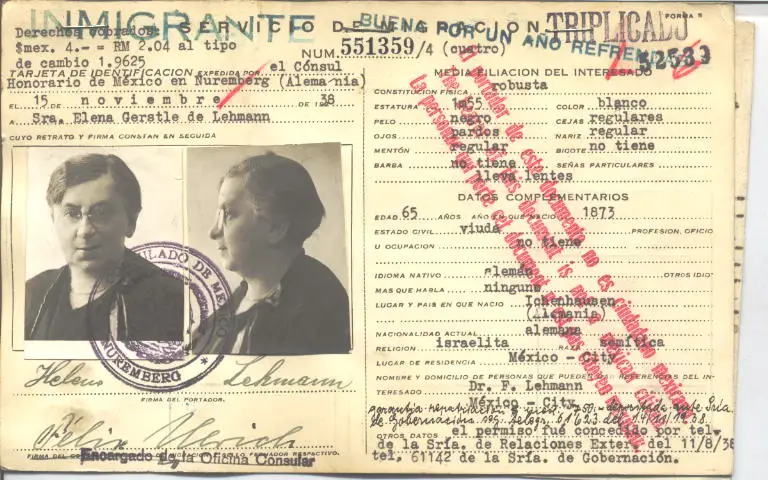 INMIGRANTE
SERVICIO DE MIGRACION
BUENA POR UN AÑO REFRENDO
TRIPLICADO
FORMA 5
Derechos cobrados
$mex. 4.- = RM 2.04 al tipo
de cambio 1.9625
NUM. 551359/4 (cuatro)
52533
TARJETA DE IDENTIFICACION EXPEDIDA POR el Cónsul
Honorario de México en Nuremberg (Alemania)
EL 15 DE noviembre DE 1938
A Sra. Elena Gerstle de Lehmann
CUYO RETRATO Y FIRMA CONSTAN EN SEGUIDA
CONSULADO DE MEXICO
NUREMBERG
Helene Lehmann
FIRMA DEL PORTADOR.
Félix
Encargado de la Oficina Consular
MEDIA FILIACION DEL INTERESADO
CONSTITUCION FISICA robusta
ESTATURA 1m55 COLOR blanco
PELO negro CEJAS regulares
OJOS pardos NARIZ regular
MENTÓN regular BIGOTE no tiene
BARBA no tiene SEÑAS PARTICULARES
lleva lentes
DATOS COMPLEMENTARIOS
EDAD 65 AÑOS AÑO EN QUE NACIO 1873
ESTADO CIVIL viuda PROFESION, OFICIO
U OCUPACION no tiene
IDIOMA NATIVO alemán OTROS IDIO-
MAS QUE HABLA ninguno
LUGAR Y PAIS EN QUE NACIO Ichenhausen
(Alemania)
NACIONALIDAD ACTUAL alemana
RELIGION israelita RAZA semítica
LUGAR DE RESIDENCIA México - City
NOMBRE Y DOMICILIO DE PERSONAS QUE PUEDEN DAR REFERENCIAS DEL IN-
TERESADO Dr. F. Lehmann
México - City
OTROS DATOS el permiso fué concedido por tel.
de la Sría. de Relaciones Exter. del 11/8/38
tel. 61142 de la Sría. de Gobernación.
El portador de este documento no es ciudadano mexicano